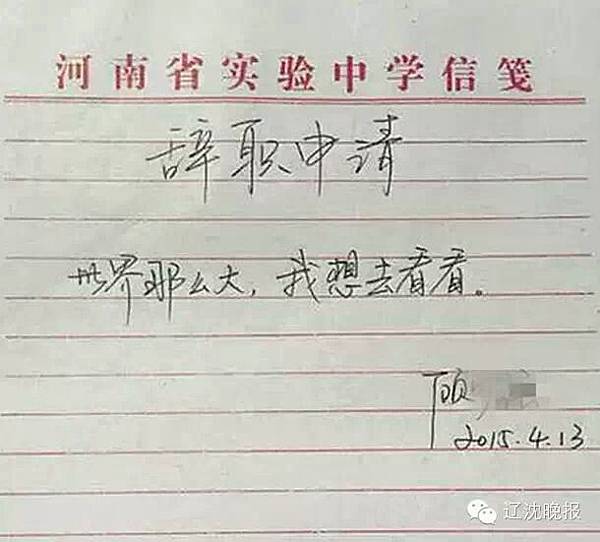 河南省实验中学信笺
辞职申请
世界那么大，我想去看看。
顾
2015.4.13
辽沈晚报